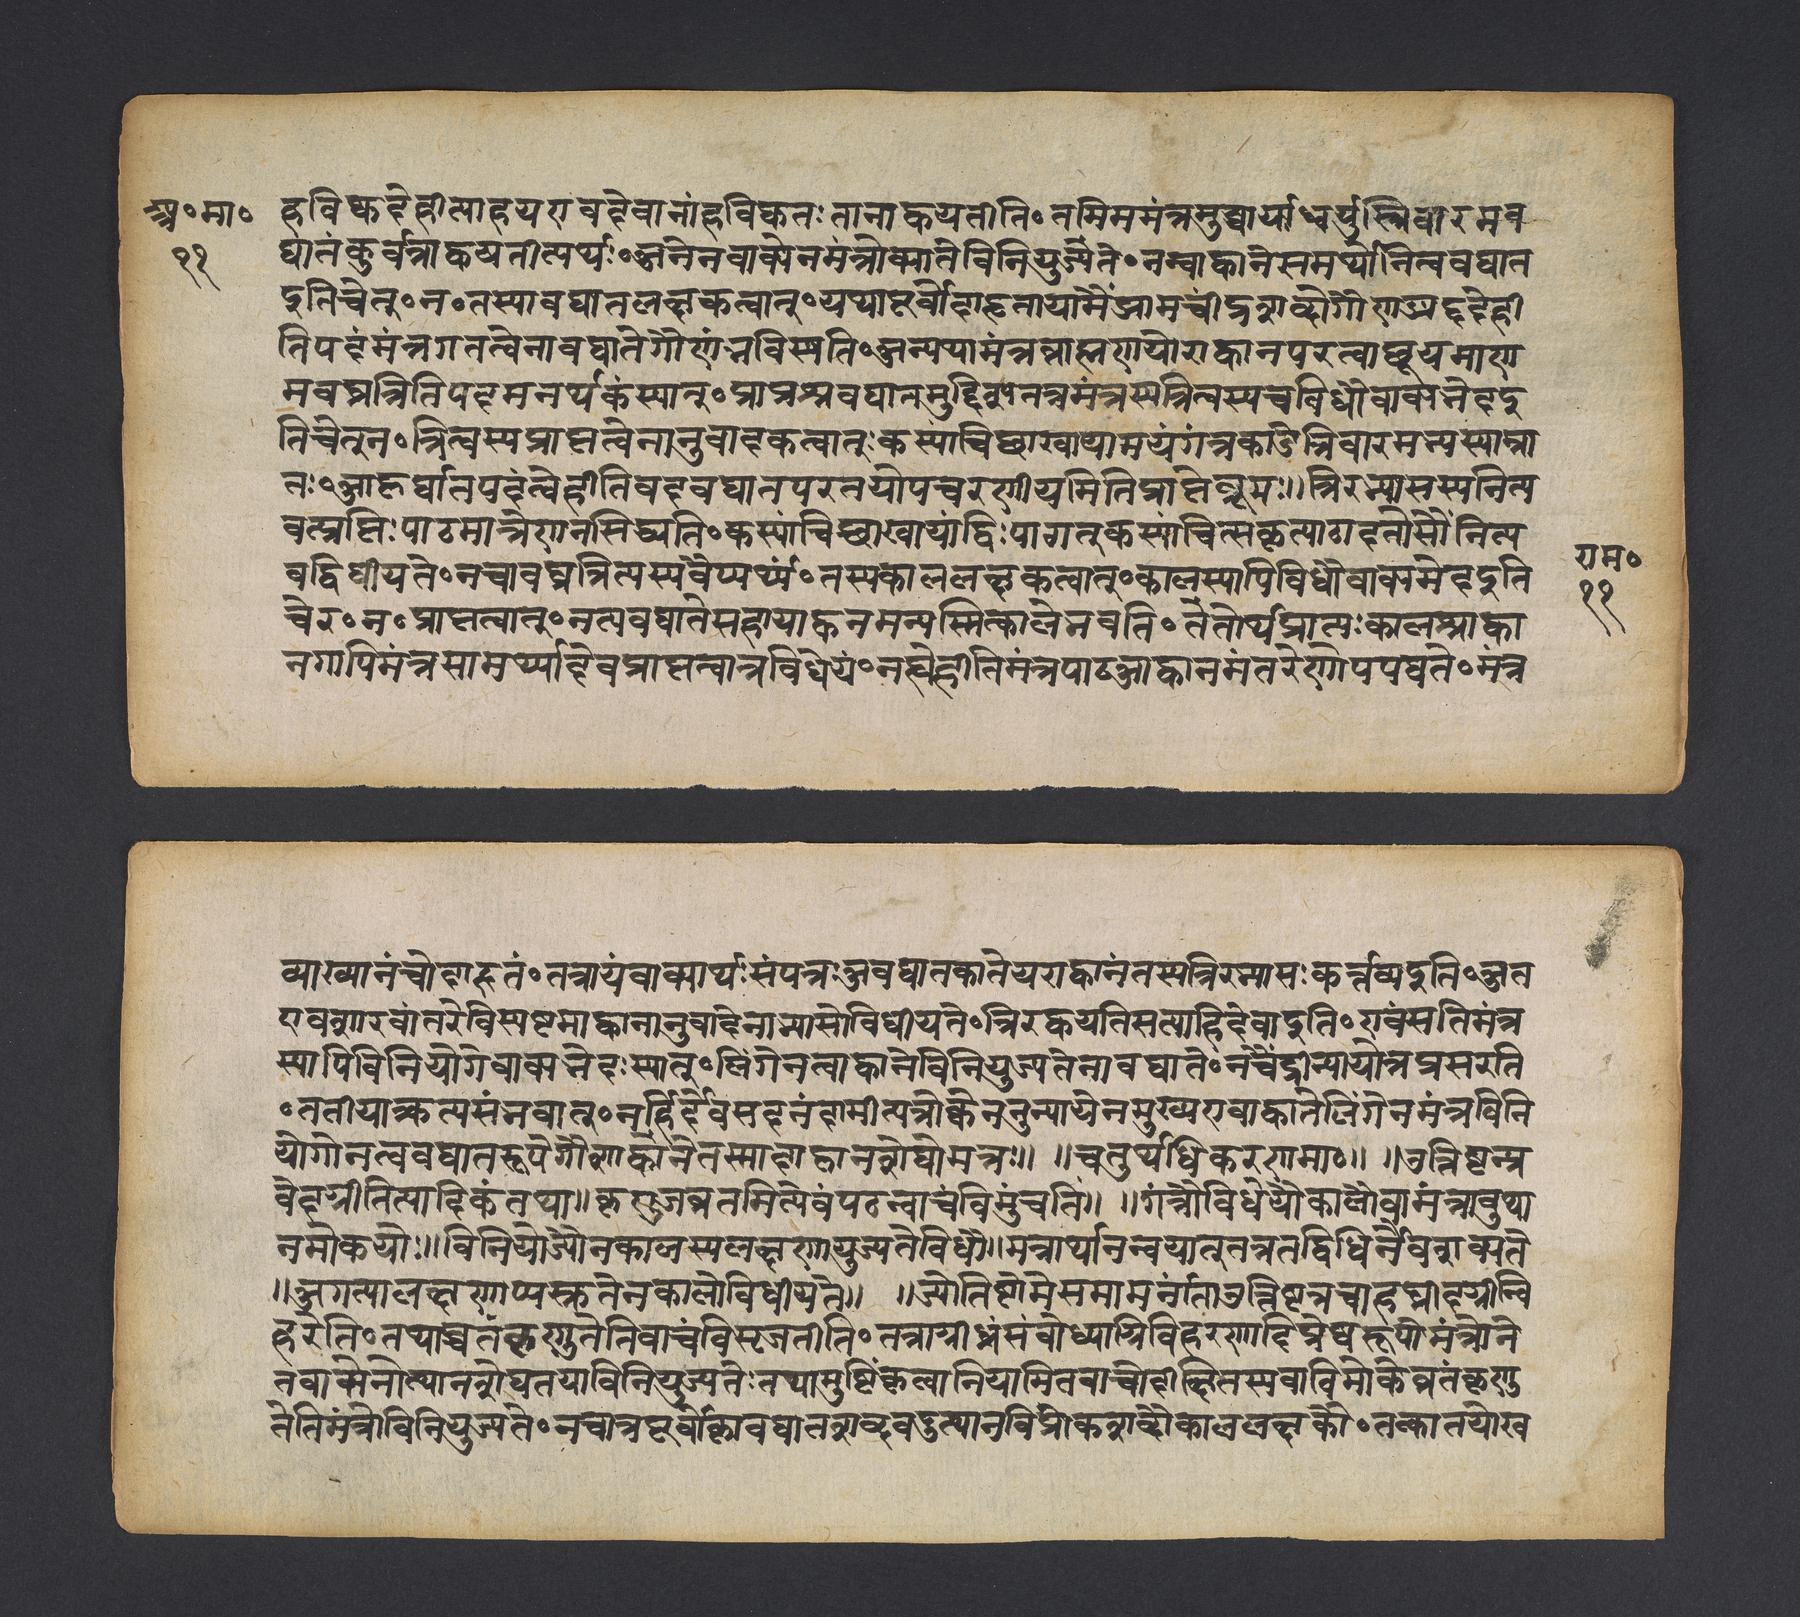 अ॰मा॰
११
हविष्कृदेहीत्याहयएवदेवानांहविष्कृतःतानाह्वयतीति॰तमिममंत्रमुच्चार्याध्वर्युस्त्रिवारमव
घातंकुर्वन्नाह्वयतीत्यर्थः॰अनेनवाक्येनमंत्रोव्यातेविनियुज्यते॰नन्वाह्वानेसमर्थोनत्ववघात
इतिचेत्॰न॰तस्यावघातलक्षकत्वात्॰यथा
तिपदंमंत्रगतत्वेनावघातेगौणंभविष्यति॰अन्यथामंत्रब्राह्मणयोराह्वानपरत्वाच्छ्रूयमाण
मवघ्नन्नितिपदमनर्थकंस्यात्॰
तिचेत्न॰त्रित्वस्यप्राप्तत्वेनानुवादकत्वात्ःकस्यांचिच्छाखायामयंमंत्रकांडेत्रिवारमन्यस्याम्ना
तः॰आहूर्घातपदंत्वेहीतिवदवघातपरतयोपचरणीयमितिप्राप्तेब्रूमः॥त्रिरभ्यासस्यनित्य
वत्प्राप्तिःपाठमात्रेणनसिद्ध्यति॰कस्यांचिच्छाखायांद्विःपाठात्कस्यांचित्सकृत्पाठादतोसौनित्य
वद्विधीयते॰नचावघ्नन्नित्यस्यवैयर्थ्यं॰तस्यकाललक्षकत्वात्॰कालस्यापिविधौवाक्यभेदइति
चेर॰न॰प्राप्तत्वात्॰नत्यवघातेसहायाह्वनमन्यस्मित्कालेभवति॰तेतोर्थप्राप्तःकालआह्वा
नगापिमंत्रसामर्थ्यादेवप्राप्तत्वान्नविधेयं॰नह्येहीतिमंत्रपाठआह्वानमंतरेणोपपद्यते॰मंत्र
राम॰
११
व्याख्यानंचोदाहृतं॰तत्रायंवाक्यार्थःसंपन्नःअवघातकातेयराह्वानंतस्यत्रिरभ्यासःकर्त्तव्यइति॰अत
एवशाखांतरेविस्पष्टमाह्वानानुवादेनाभ्यासोविधीयते॰त्रिरह्वयतिसत्याहिदेवाइति॰एवंसतिमंत्र
स्यापिविनियोगेवाक्यभेदःस्यात्॰लिंगेनत्वाह्वानेविनियुज्यतेनावघाते॰नचैंद्रीन्यायोत्रप्रसरति
॰ततीयाश्रुत्यसंभवात्॰तर्हिर्देवसदनंदामीत्यत्रोक्तेनतुन्यायेनमुख्यएवाह्वातेलिंगेनमंत्रविनि
योगोनत्ववघातरूपेगौणाह्वानेतस्मादाह्वानशेषोमंत्रः॥ ॥चतुर्थधिकरणमा॰॥ ॥उत्तिष्टन्प्र
वेदग्नीतित्यादिकंतथा॥कृणुजव्रतमित्येवंपठन्वाचंविमुंचति॥ ॥मंत्रौविधेयौकालोवामंत्रावुथा
नमोकयोः॥विनियोज्यौनकालस्यलक्षणायुज्यतेविधौ॥मन्त्रार्थानन्वयात्तत्रतद्विधिर्नैवशक्यते
॥अगत्यालक्षणाप्यस्त्तेनकालोविधीयते॥ ॥ज्योतिष्टोमेसमामनंति॰उत्तिष्टन्नन्वाहाग्नीदग्नीन्वि
हरेति॰तथाव्रतंकृणुतेतिवाचंविसृजतीति॰तत्राग्नीध्रंसंबोध्याग्निविहरणादिप्रैषरूपोमंत्रोने
तवाक्येनोत्थानशेषतयाविनियुज्यतेःतथामुष्टिंकृत्वानियमितवाचोदीक्षितस्यवाग्विमोकेव्रतंकृणु
तेतिमंत्रोविनियुज्यते॰नचात्रपूर्वोक्तावघातशब्दवदुत्थानविमोकशब्दौकाललक्षकौ॰तत्कातयोख